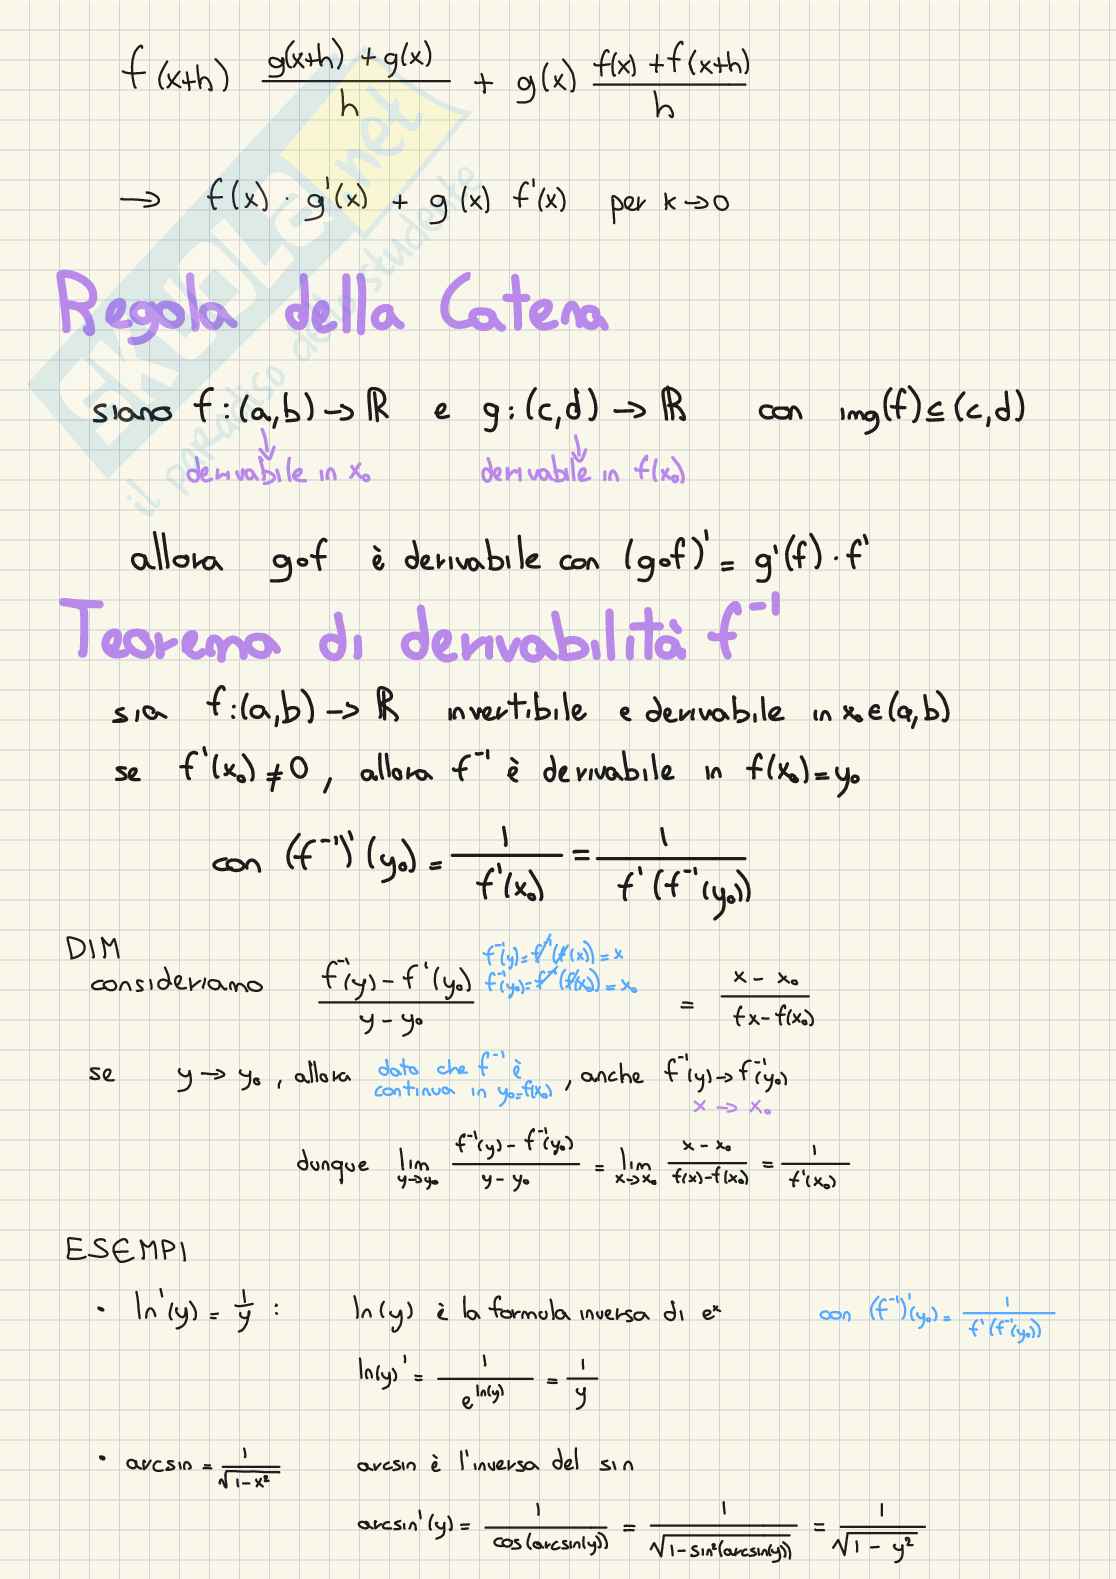 f(x+h) (g(x+h) + g(x))/h + g(x) (f(x) + f(x+h))/h
→ f(x) · g'(x) + g(x) f'(x) per k→0
Regola della Catena
siano f:(a,b)→ℝ e g:(c,d)→ℝ con img(f)⊆(c,d)
derivabile in x₀ derivabile in f(x₀)
allora g∘f è derivabile con (g∘f)' = g'(f)·f'
Teorema di derivabilità f⁻¹
sia f:(a,b)→ℝ invertibile e derivabile in x₀∈(a,b)
se f'(x₀)≠0, allora f⁻¹ è derivabile in f(x₀)=y₀
con (f⁻¹)'(y₀) = 1/f'(x₀) = 1/f'(f⁻¹(y₀))
DIM
f⁻¹(y)=f⁻¹(f(x))=x
f⁻¹(y₀)=f⁻¹(f(x₀))=x₀
consideriamo (f⁻¹(y) - f⁻¹(y₀))/(y - y₀) = (x - x₀)/(fx - f(x₀))
se y→y₀, allora dato che f⁻¹ è continua in y₀=f(x₀), anche f⁻¹(y)→f⁻¹(y₀)
x → x₀
dunque lim y→y₀ (f⁻¹(y) - f⁻¹(y₀))/(y - y₀) = lim x→x₀ (x - x₀)/(f(x)-f(x₀)) = 1/f'(x₀)
ESEMPI
• ln'(y) = 1/y : ln(y) è la formula inversa di eˣ con (f⁻¹)'(y₀) = 1/f'(f⁻¹(y₀))
ln(y)' = 1/e^ln(y) = 1/y
• arcsin = 1/√(1-x²) arcsin è l'inversa del sin
arcsin'(y) = 1/cos(arcsin(y)) = 1/√(1-sin²(arcsin(y))) = 1/√(1 - y²)
SKUOLA.net
il paradiso dello studente